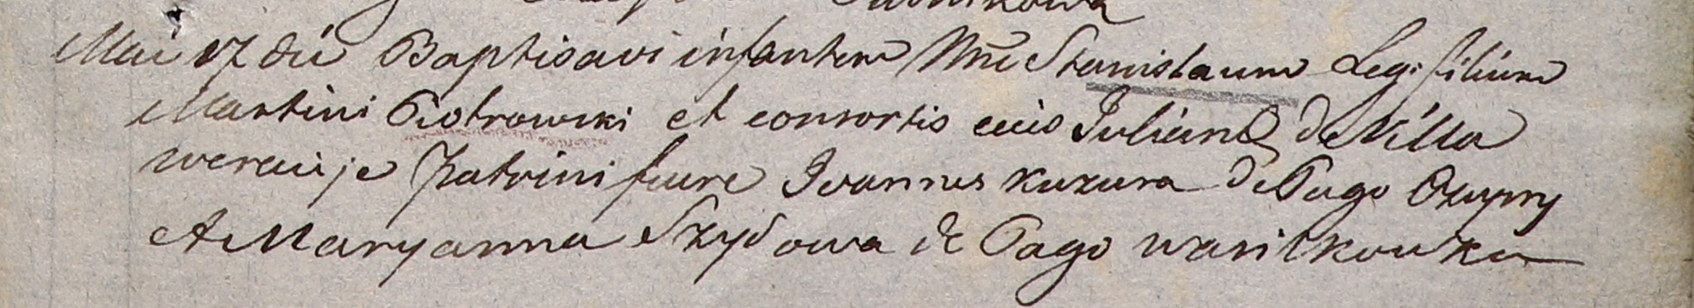 Mai 17 die Baptisavi infantem Nne Stanislaum Leg: filium
Martini Piotrowski et consortis eius Juliane de Villa
patrini fuere Joannes Kukura de Pago
et Maryanna Szydowa de Pago